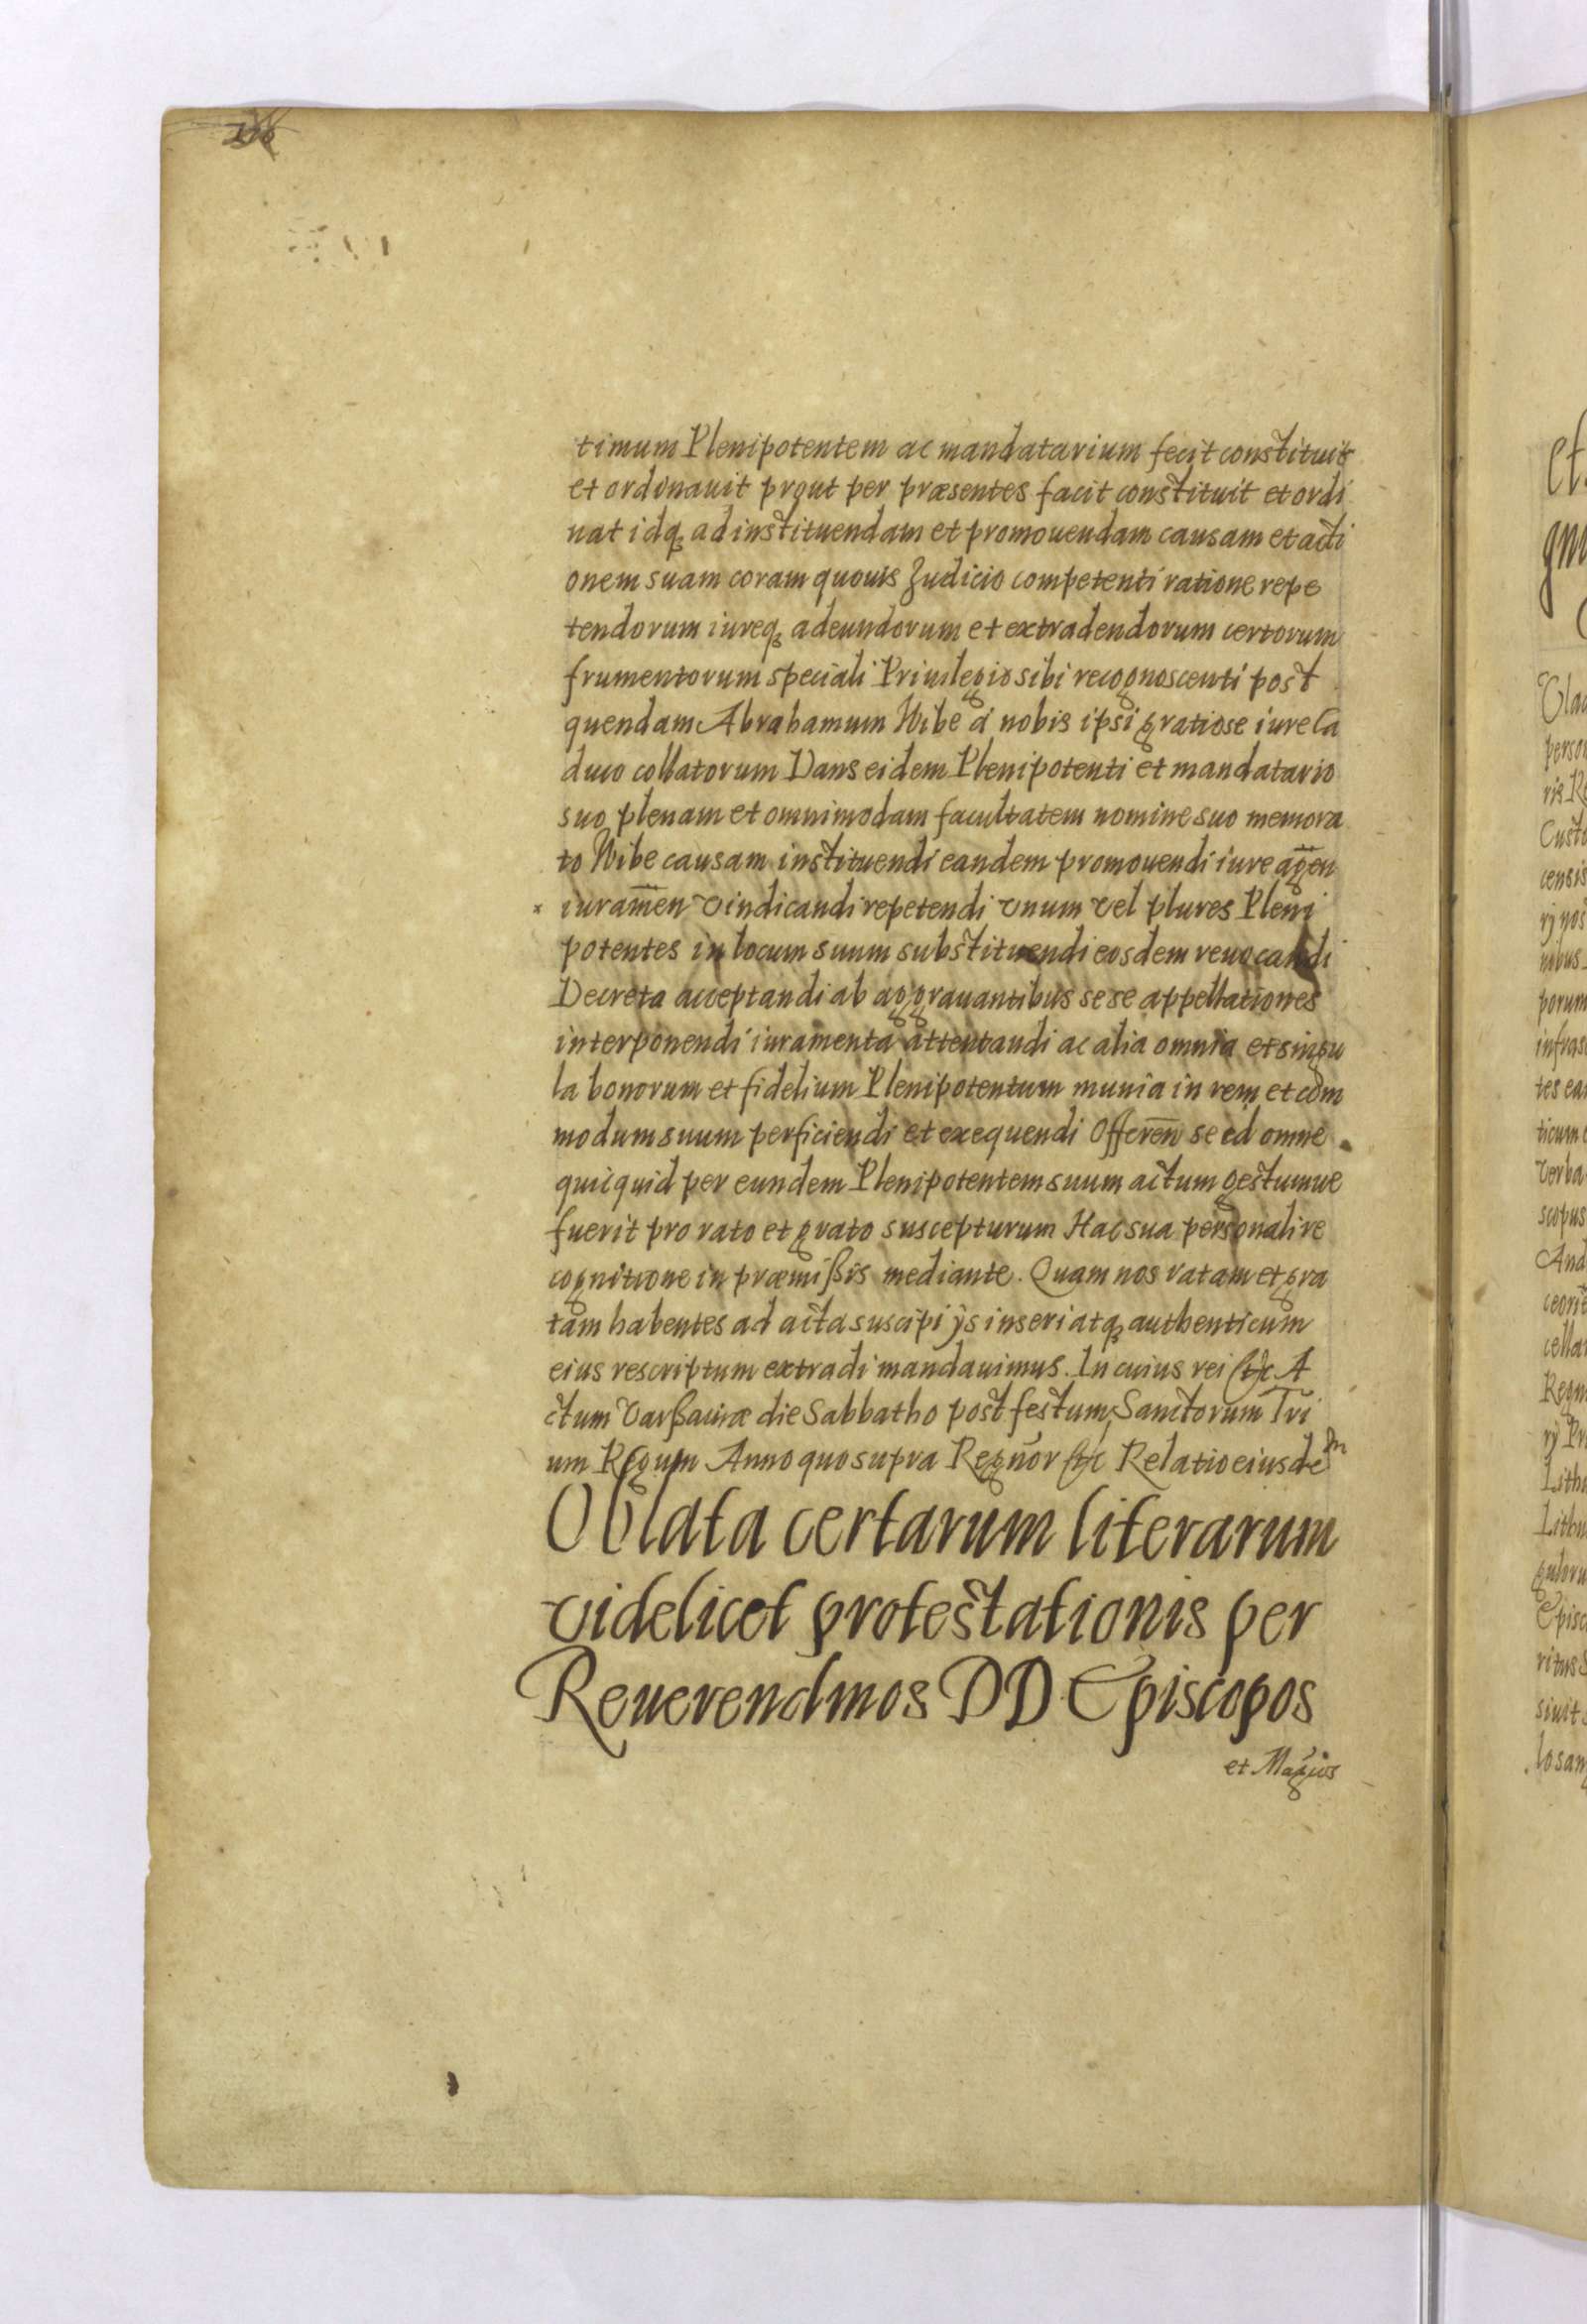 timum Plenipotentem ac mandatarium fecit constituit
et ordinauit prout per præsentes facit constituit et ordi
nat idq; ad instituendam et promouendam causam et acti
onem suam coram quouis Judicio competenti ratione repe
tendorum iureq; adeundorum et extradendorum certorum
frumentorum speciali Priuilegio sibi recognoscenti post
quendam Abrahamum Wibe à nobis ipsi gratiose iure ca
duco collatorum Dans eidem Plenipotenti et mandatario
suo plenam et omnimodam facultatem nomine suo memora
to Wibe causam instituendi eandem promouendi iure agen̄
iuramen̄ vindicandi repetendi vnum vel plures Pleni
potentes in locum suum substituendi eosdem reuocandi
Decreta acceptandi ab aggrauantibus sese appellationes
interponendi iuramenta attentandi ac alia omnia et singu
la bonorum et fidelium Plenipotentum munia in rem et com
modum suum perficiendi et exequendi Offeren̄ se id omne
quicquid per eundem Plenipotentem suum actum gestumue
fuerit pro rato et grato suscepturum Hac sua personali re
cognitione in præmißis mediante. Quam nos ratam et gra
tam habentes ad acta suscipi ijs inseri atq; authenticum
eius rescriptum extradi mandauimus. In cuius rei etc A
ctum Varßauiæ die Sabbatho post festum Sanctorum Tri
um Regum Anno quo supra Regnor etc Relatio eiusdem
Oblata certarum literarum
videlicet protestationis per
Reuerendmos DD Episcopos
et Magcos